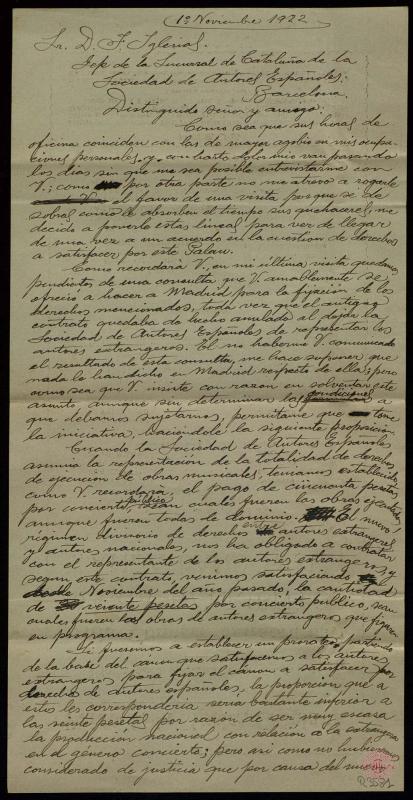 1º Noviembre 1922
Sr. D. F. Iglesias.
Jefe de la Sucursal de Cataluña de la
Sociedad de Autores Españoles.
Barcelona.
Distinguido señor y amigo:
Como sea que sus horas de
oficina coinciden con las de mayor agobio en mis ocupa-
ciones personales, y con harto dolor mio van pasando
los dias sin que me sea posible entrevistarme con
V.; como por otra parte no me atrevo a rogarle
el favor de una visita porque se de
sobras como le absorben el tiempo sus quehaceres, me
decido a ponerle estas lineas para ver de llegar
de una vez a un acuerdo en la cuestion de derechos
a satisfacer por este Palau.
Como recordará V., en mi última visita quedamos
pendientes de una consulta que V. amablemente se
ofreció a hacer a Madrid para la fijación de los
derechos mencionados, toda vez que el antiguo
contrato quedaba de hecho anulado al dejar la
Sociedad de Autores Españoles de representar los
autores extrangeros. El no haberme V. comunicado
el resultado de esta consulta, me hace suponer que
nada le han dicho en Madrid respecto de ella; pero
como sea que V. insiste con razon en solventar este
asunto, aunque sin determinar las condiciones a
que debamos sujetarnos, permitame que tome
la iniciativa, haciendole la siguiente proposición.
Cuando la Sociedad de Autores Españoles
asumia la representación de la totalidad de derechos
de ejecución de obras musicales, teniamos establecido,
como V. recordará, el pago de cincuenta pesetas
por concierto público, sean cuales fueren las obras ejecutadas,
aunque fueren todas de dominio. El nuevo
régimen divisorio de derechos entre autores extrangeros
y autores nacionales, nos ha obligado a contratar
con el representante de los autores extrangeros, y
segun este contrato, venimos satisfaciendo,
desde Noviembre del año pasado, la cantidad
de veinte pesetas por concierto público, sean
cuales fueren las obras de autores extrangeros que figuren
en programa.
Si fuesemos a establecer un prorrateo, partiendo
de la base del canon que satisfacemos a los autores
extrangeros para fijar el cánon a satisfacer por
derechos de autores españoles, la proporción que a
estos les corresponderia seria bastante inferior a
las veinte pesetas por razon de ser muy escasa
la producción nacional con relación a la extrangera
en el género concierto; pero asi como no hubieramos
considerado de justicia que por causa del nuevo